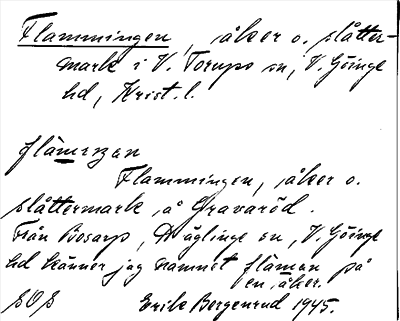 Flammingen, åker o. slåtter-
mark i V. Torups sn, V. Göinge
hd, Krist. l.
flämıŋən
Flammingen, åker o.
slåttermark å Gravaröd.
Från Bosarp, Röinge sn, V. Göinge
hd känner jag namnet flämən på
en åker.
SOS Erik Bergenrud 1945.